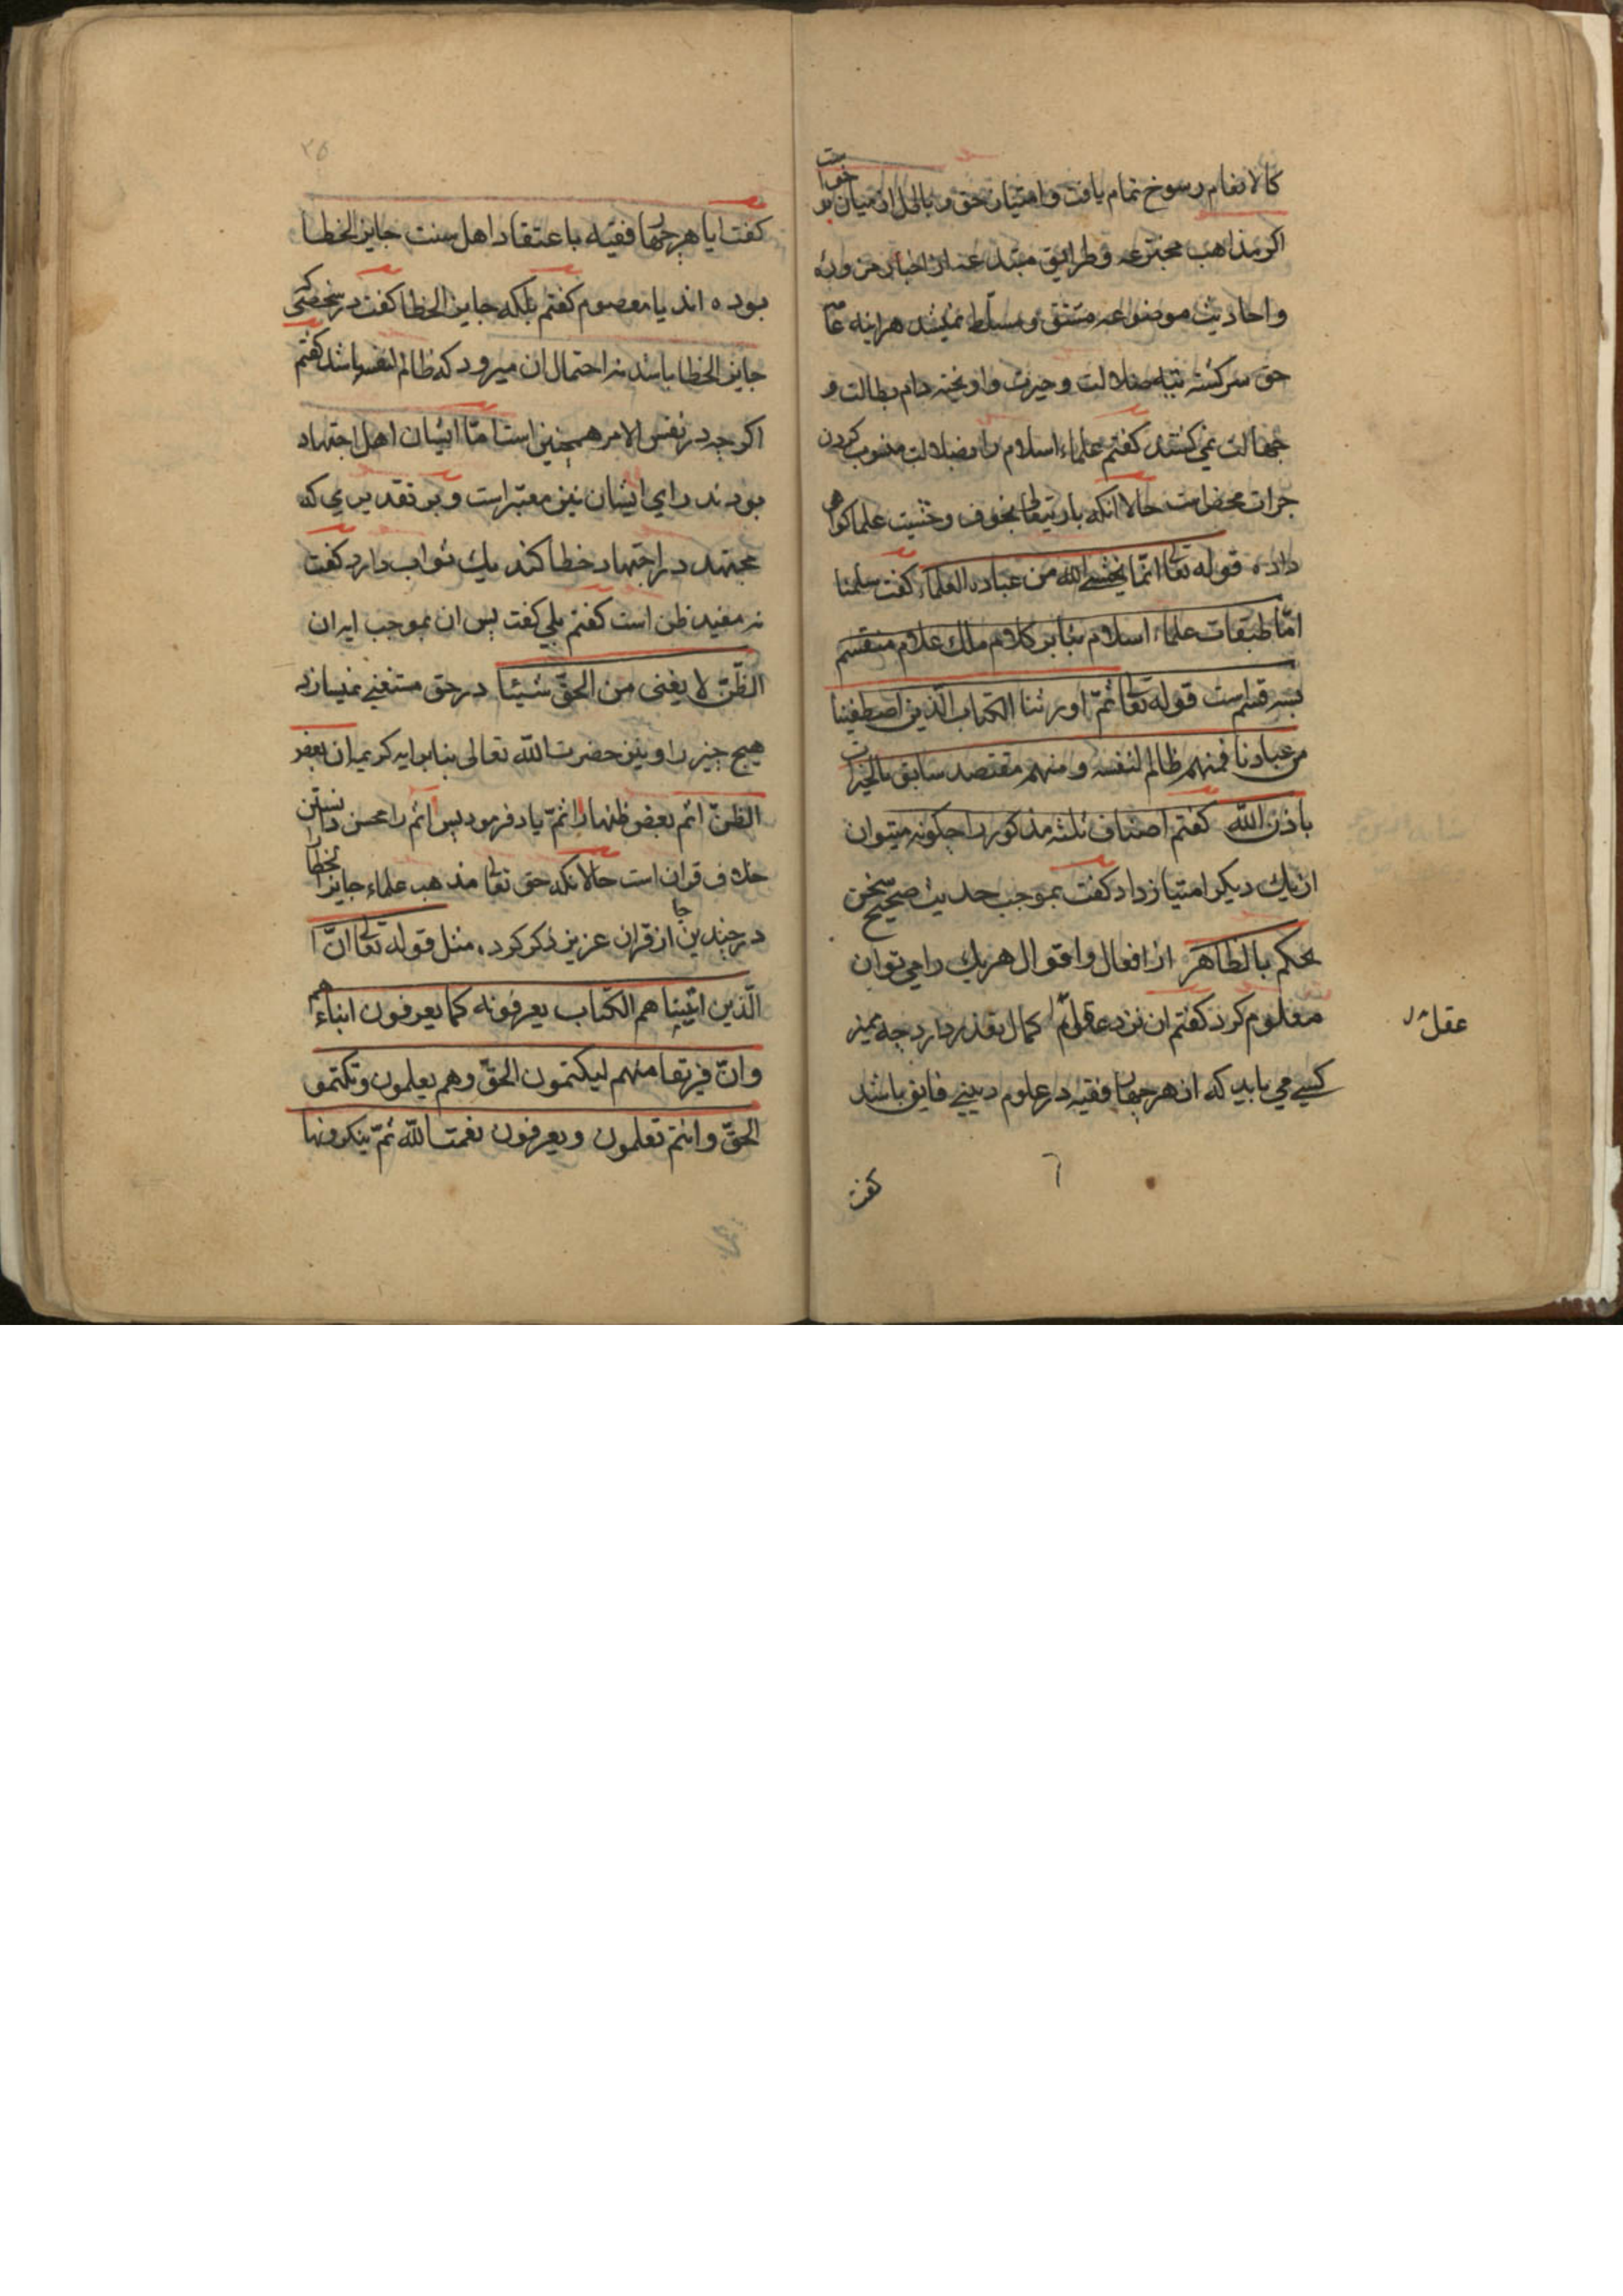 کالانعام رسوخ تمام یافت و امتیاز حق و باطل از میان
اکر مذاهب مخترعه و طرایق مبتدعه از اخبار مزوره
و احادیث موضوعه متفق و مسلط نمیشد هراینه
حق سرکشته تیه ضلالت و حیرت و اویخته دام بطالت و
جهالت نمی کشتند کفتم علماء اسلام را بضلالت منسوب کردن
جرات محض است حالانکه باریتعالی بخوف و خشیت علما کواهی
داده قوله تعالی انّما یخشی الله من عباده العلماء کفت سلمنا
امّا طبقات علماء اسلام بنابر کلام ملك علام منقسم
بسه قسم است قوله تعالی ثمّ اورثنا الکتاب الّذین اصطفینا
من عبادنا فمنهم ظالم لنفسه و منهم مقتصد سابق بالخیرات
باذن اللّه کفتم اصناف ثلثه مذکور را چکونه میتوان
از یك دیکر امتیاز داد کفت بموجب حدیث صحیح نحن
نحکم بالظاهر از افعال و اقوال هر یك را می توان
معلوم کرد کفتم ان نزد کمال تعذر دارد چه ممیز
عقل
کسی می باید که از هر چهار فقیه در علوم دینی فایق باشد
کفت
۳۵
کفت ایا هر چهار فقیه باعتقاد اهل سنت جایز الخطا
بوده اند یا معصوم کفتم بلکه جایز الخطا کفت هر شخصی که
جایز الخطا باشد نه احتمال ان میرود که ظالم لنفسه باشد کفتم
اکرچه در نفس الامر همچنین است امّا ایشان اهل اجتهاد
بودند رای ایشان نیز معتبر است و بر تقدیری که
مجتهد در اجتهاد خطا کند یك ثواب دارد کفت
نه مفید ظن است کفتم بلی کفت پس ان بموجب ان
الظّنّ لا یغنی من الحقّ شیئا در حق مستغنی نمیسازد
هیچ چیز را و نیز حضرت اللّه تعالی بنابر ایه کریمه ان بعض
الظنّ اثم بعض ظنها را اثمّ یاد فرمود پس اثم را محسن دانستن
خلاف قران است حالانکه حق تعالی مذهب علماء جایز الخطا را
در چندین جا از قران عزیز ذکر کرده مثل قوله تعالی انّ
الّذین اتیناهم الکتاب یعرفونه کما یعرفون ابناءهم
وانّ فریقا منهم لیکتمون الحقّ وهم یعلمون وتکتموا
الحقّ وانتم تعلمون ویعرفون نعمت اللّه ثمّ ینکرونها